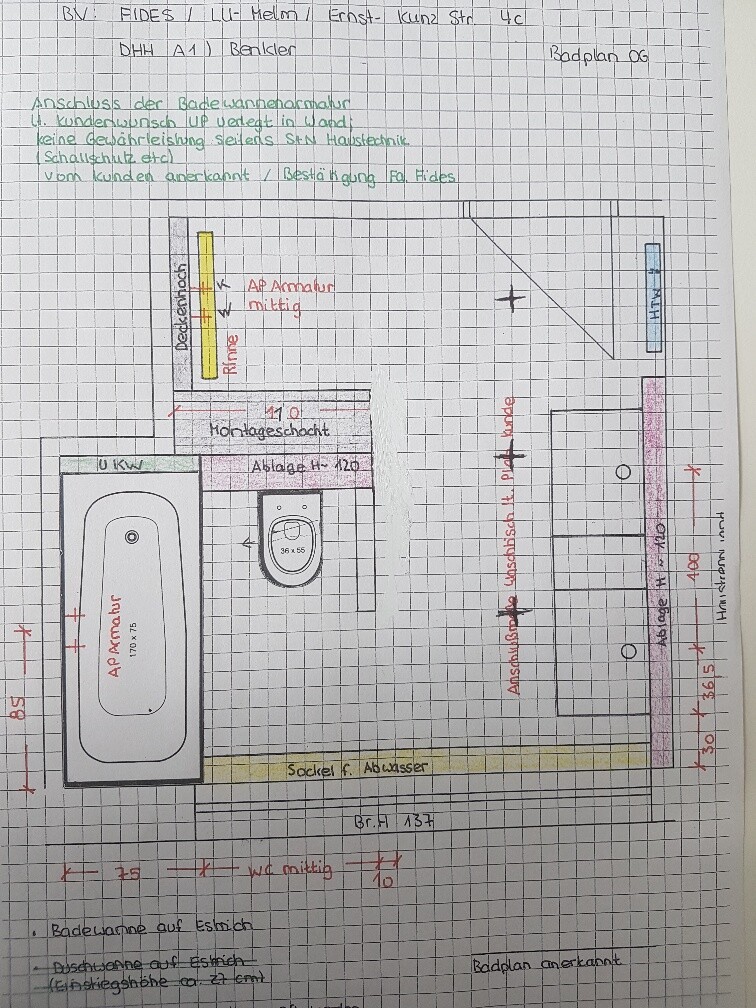 BV: FIDES / LU- Melm / Ernst- Kunz Str. 4c
DHH (A1) Benkler
Badplan OG
Anschluss der Badewannenarmatur
lt. Kundenwunsch UP verlegt in Wand;
keine Gewährleistung seitens S+N Haustechnik
(Schallschutz etc)
vom Kunden anerkannt / Bestätigung Fa. Fides
Deckenhoch
K
W
AP Armatur
mittig
Rinne
HTW
110
Montageschacht
UKW
Ablage H~ 120
36 x 55
AP Armatur
170 x 75
85
Waschtisch lt.
Kunde
Ablage H ~ 120
100
36,5
30
Sockel f. Abwasser
Br.H 137
75
WC mittig
10
• Badewanne auf Estrich
• Duschwanne auf Estrich
(Einstiegshöhe ca. 27 cm)
Badplan anerkannt